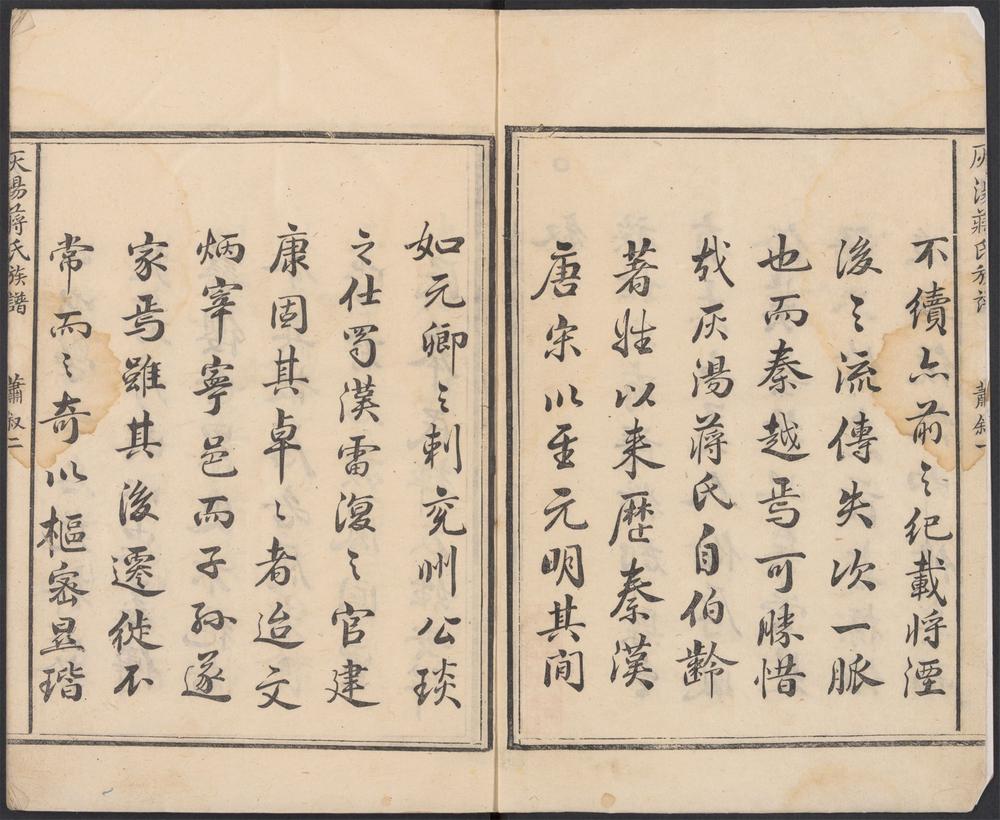 不續亦前之紀載將湮
後之流傳失次一脈
也而秦越焉可勝惜
哉灰湯蔣氏自伯齡
著姓以来歷秦漢
唐宋以至元明其间
如元卿之刺兖州公琰
之仕蜀漢雷復之官建
康固其卓之者迨文
炳宰寧邑而子孫遂
家焉雖其後遷徙不
常而之奇以樞密显瑎
灰湯蔣氏族譜
蕭叙二